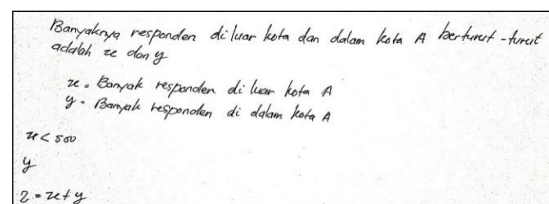 Banyaknya responden di luar kota dan dalam kota A berturut-turut
adalah x dan y
x = Banyak responden di luar kota A
y = Banyak responden di dalam kota A
x < 500
y
z = x + y